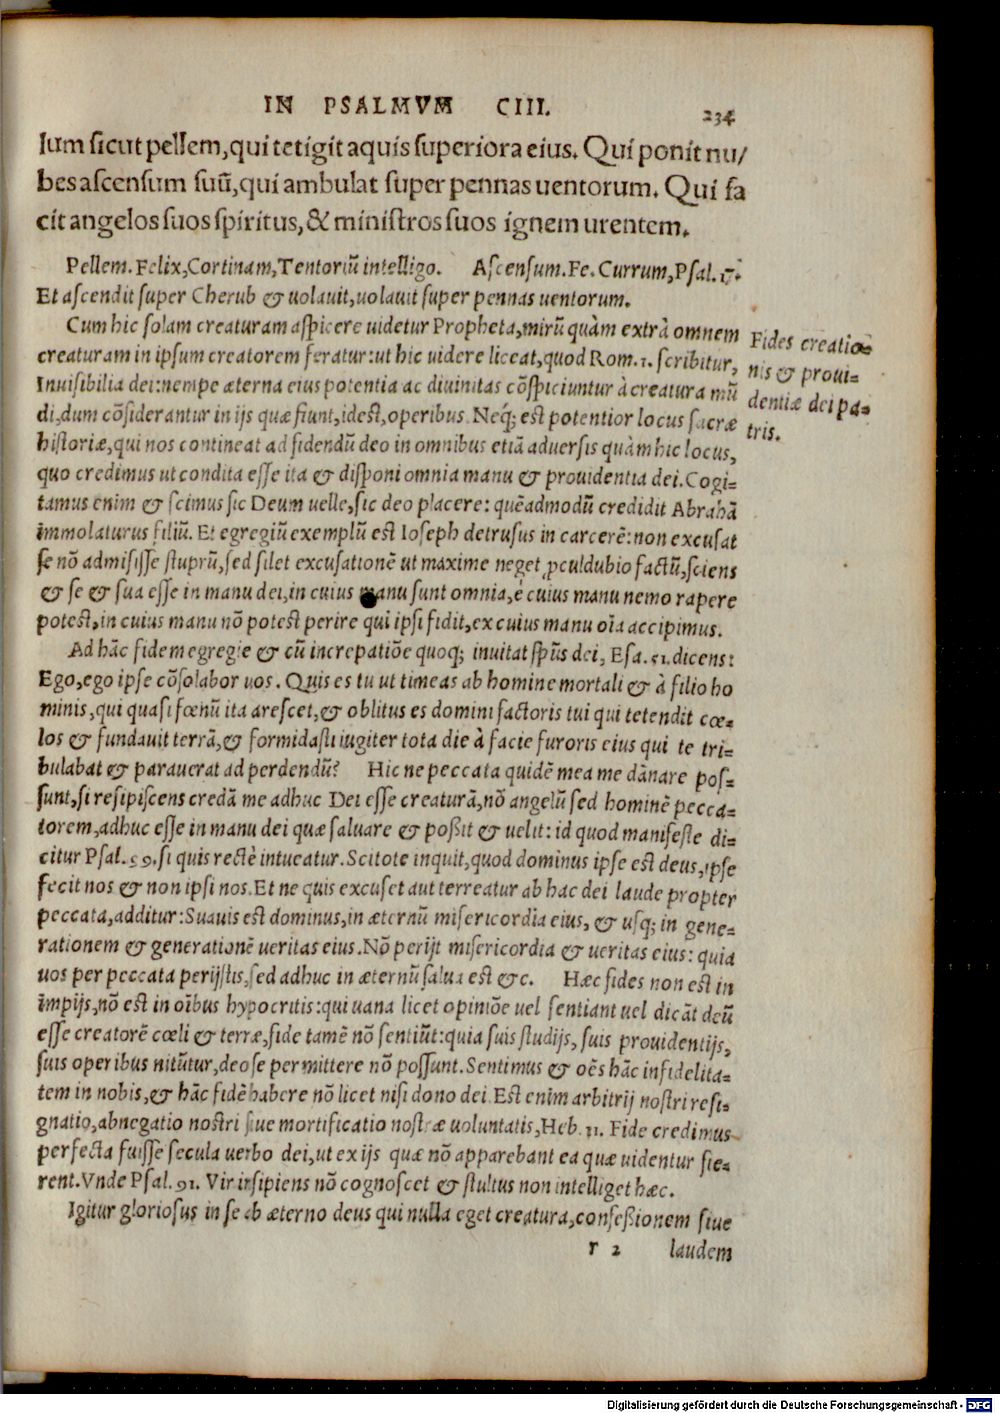 IN PSALMVM CIII. 234
lum sicut pellem, qui tetigit aquis superiora eius. Qui ponit nu/
bes ascensum suũ, qui ambulat super pennas uentorum. Qui fa
cit angelos suos spiritus, & ministros suos ignem urentem.
Pellem. Felix, Cortinam, Tentoriũ intelligo. Ascensum. Fe. Currum, Psal. 17.
Et ascendit super Cherub & uolauit, uolauit super pennas uentorum.
Cum hic solam creaturam aspicere uidetur Propheta, mirũ quàm extrà omnem
creaturam in ipsum creatorem feratur: ut hic uidere liceat, quod Rom. 1. scribitur,
Inuisibilia dei: nempe æterna eius potentia ac diuinitas cõspiciuntur à creatura mũ
di, dum cõsiderantur in ijs quæ fiunt, id est, operibus. Neq́; est potentior locus sacræ
historiæ, qui nos contineat ad fidendũ deo in omnibus etiã aduersis quàm hic locus,
quo credimus ut condita esse ita & disponi omnia manu & prouidentia dei. Cogi=
tamus enim & scimus sic Deum uelle, sic deo placere: quẽadmodũ credidit Abrahã
immolaturus filiũ. Et egregiũ exemplũ est Ioseph detrusus in carcerẽ: non excusat
se nõ admisisse stuprũ, sed silet excusationẽ ut maxime neget ꝓculdubio factũ, sciens
& se & sua esse in manu dei, in cuius manu sunt omnia, è cuius manu nemo rapere
potest, in cuius manu nõ potest perire qui ipsi fidit, ex cuius manu oĩa accipimus.
Ad hãc fidem egregie & cũ increpatiõe quoq; inuitat sp̃us dei, Esa. 51. dicens:
Ego, ego ipse cõsolabor uos. Quis es tu ut timeas ab homine mortali & à filio ho
minis, qui quasi fœnũ ita arescet, & oblitus es domini factoris tui qui tetendit cœ=
los & fundauit terrã, & formidasti iugiter tota die à facie furoris eius qui te tri=
bulabat & parauerat ad perdendũ? Hic ne peccata quidẽ mea me dãnare pos=
sunt, si resipiscens credã me adhuc Dei esse creaturã, nõ angelũ sed hominẽ pecca=
torem, adhuc esse in manu dei quæ saluare & poßit & uelit: id quod manifeste di=
citur Psal. 99. si quis rectè intueatur. Scitote inquit, quod dominus ipse est deus, ipse
fecit nos & non ipsi nos. Et ne quis excuset aut terreatur ab hac dei laude propter
peccata, additur: Suauis est dominus, in æternũ misericordia eius, & usq; in gene=
rationem & generationẽ ueritas eius. Nõ perijt misericordia & ueritas eius: quia
uos per peccata perijstis, sed adhuc in æternũ salua est &c. Hæc fides non est in
impijs, nõ est in oĩbus hypocritis: qui uana licet opiniõe uel sentiant uel dicãt deũ
esse creatorẽ cœli & terræ, fide tamẽ nõ sentiũt: quia suis studijs, suis prouidentijs,
suis operibus nitũtur, deo se permittere nõ possunt. Sentimus & oẽs hãc infidelita=
tem in nobis, & hãc fidẽ habere nõ licet nisi dono dei. Est enim arbitrij nostri resi=
gnatio, abnegatio nostri siue mortificatio nostræ uoluntatis, Heb. 11. Fide credimus
perfecta fuisse secula uerbo dei, ut ex ijs quæ nõ apparebant ea quæ uidentur fie=
rent. Vnde Psal. 91. Vir insipiens nõ cognoscet & stultus non intelliget hæc.
Igitur gloriosus in se ab æterno deus qui nulla eget creatura, confeßionem siue
r 2 laudem
Fides creatio=
nis & proui=
dentiæ dei pa=
tris.
Digitalisierung gefördert durch die Deutsche Forschungsgemeinschaft - DFG